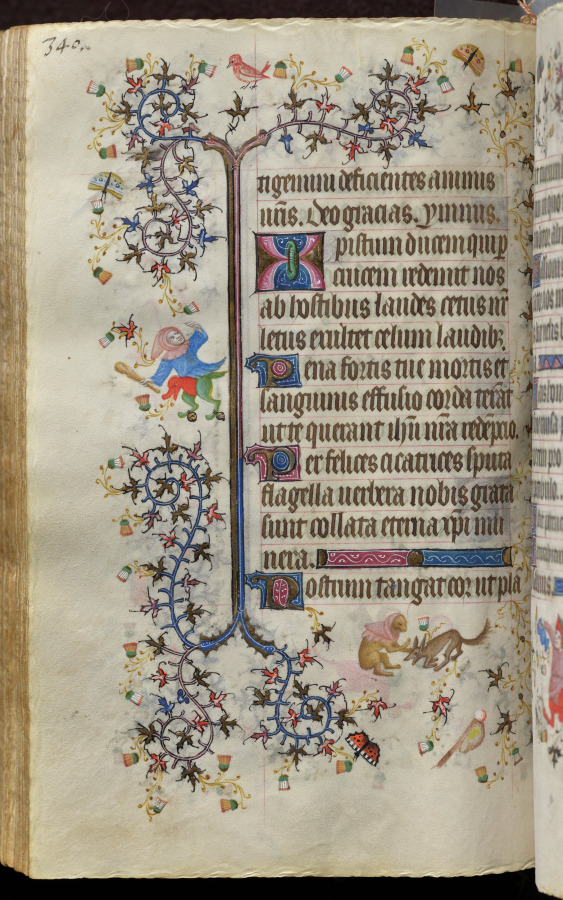 340
tigemini deficientes animis
uris. Deo gracias. Ymnus.
Xpistum ducem qui p
crucem redemit nos
ab hostibus laudes cetus nr
letus exultet celum laudib;
Pena fortis tue mortis et
sanguinis effusio corda terat
ut te querant ihu nra redepcio.
Per felices cicatrices sputa
flagella uerbera nobis grata
sunt collata eterna xpi mu
nera.
Nostrum tangat cor ut pla